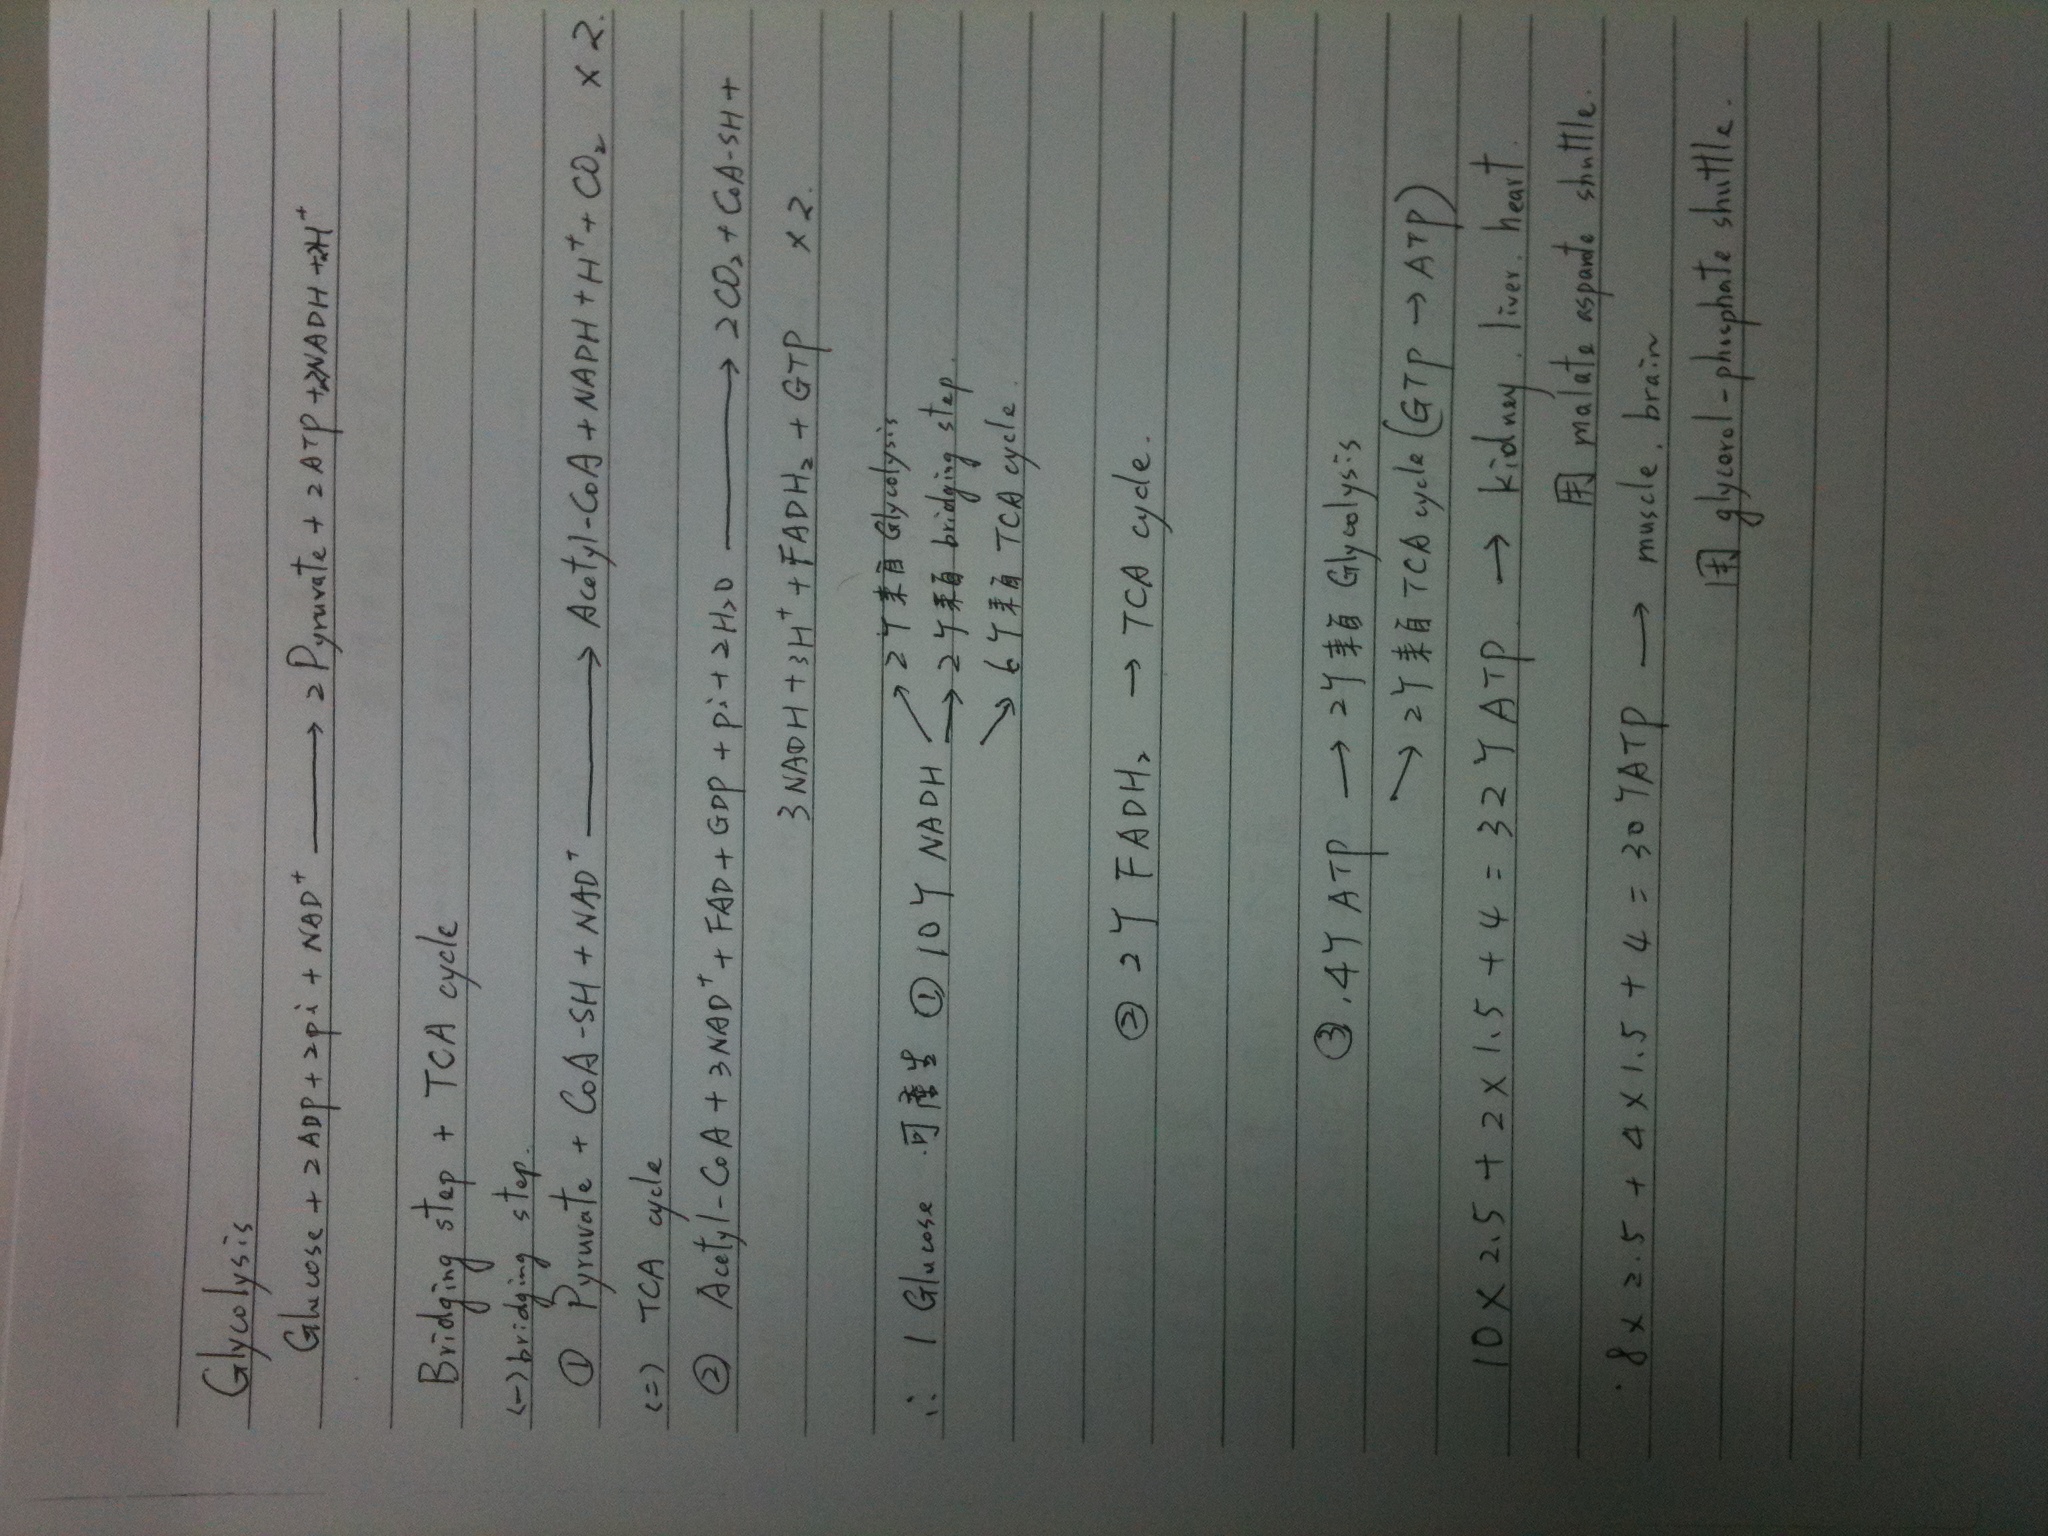 Glycolysis
Glucose + 2ADP + 2pi + NAD⁺ ⟶ 2 Pyruvate + 2ATP + 2NADH + 2H⁺
Bridging step + TCA cycle
(一) bridging step.
① Pyruvate + CoA-SH + NAD⁺ ⟶ Acetyl-CoA + NADH + H⁺ + CO₂ × 2.
(二) TCA cycle
② Acetyl-CoA + 3NAD⁺ + FAD + GDP + pi + 2H₂O ⟶ 2CO₂ + CoA-SH +
3NADH + 3H⁺ + FADH₂ + GTP × 2.
→ 2个來自 Glycolysis
∴ 1 Glucose 可產生 ① 10个 NADH → 2个來自 bridging step.
↘ 6个來自 TCA cycle.
② 2个 FADH₂ → TCA cycle.
③ .4个 ATP → 2个來自 Glycolysis
↘ 2个來自 TCA cycle (GTP → ATP)
10 × 2.5 + 2 × 1.5 + 4 = 32个 ATP → kidney. liver. heart.
用 malate asparate shuttle.
8 × 2.5 + 4 × 1.5 + 4 = 30个ATP → muscle. brain
用 glycerol-phosphate shuttle.